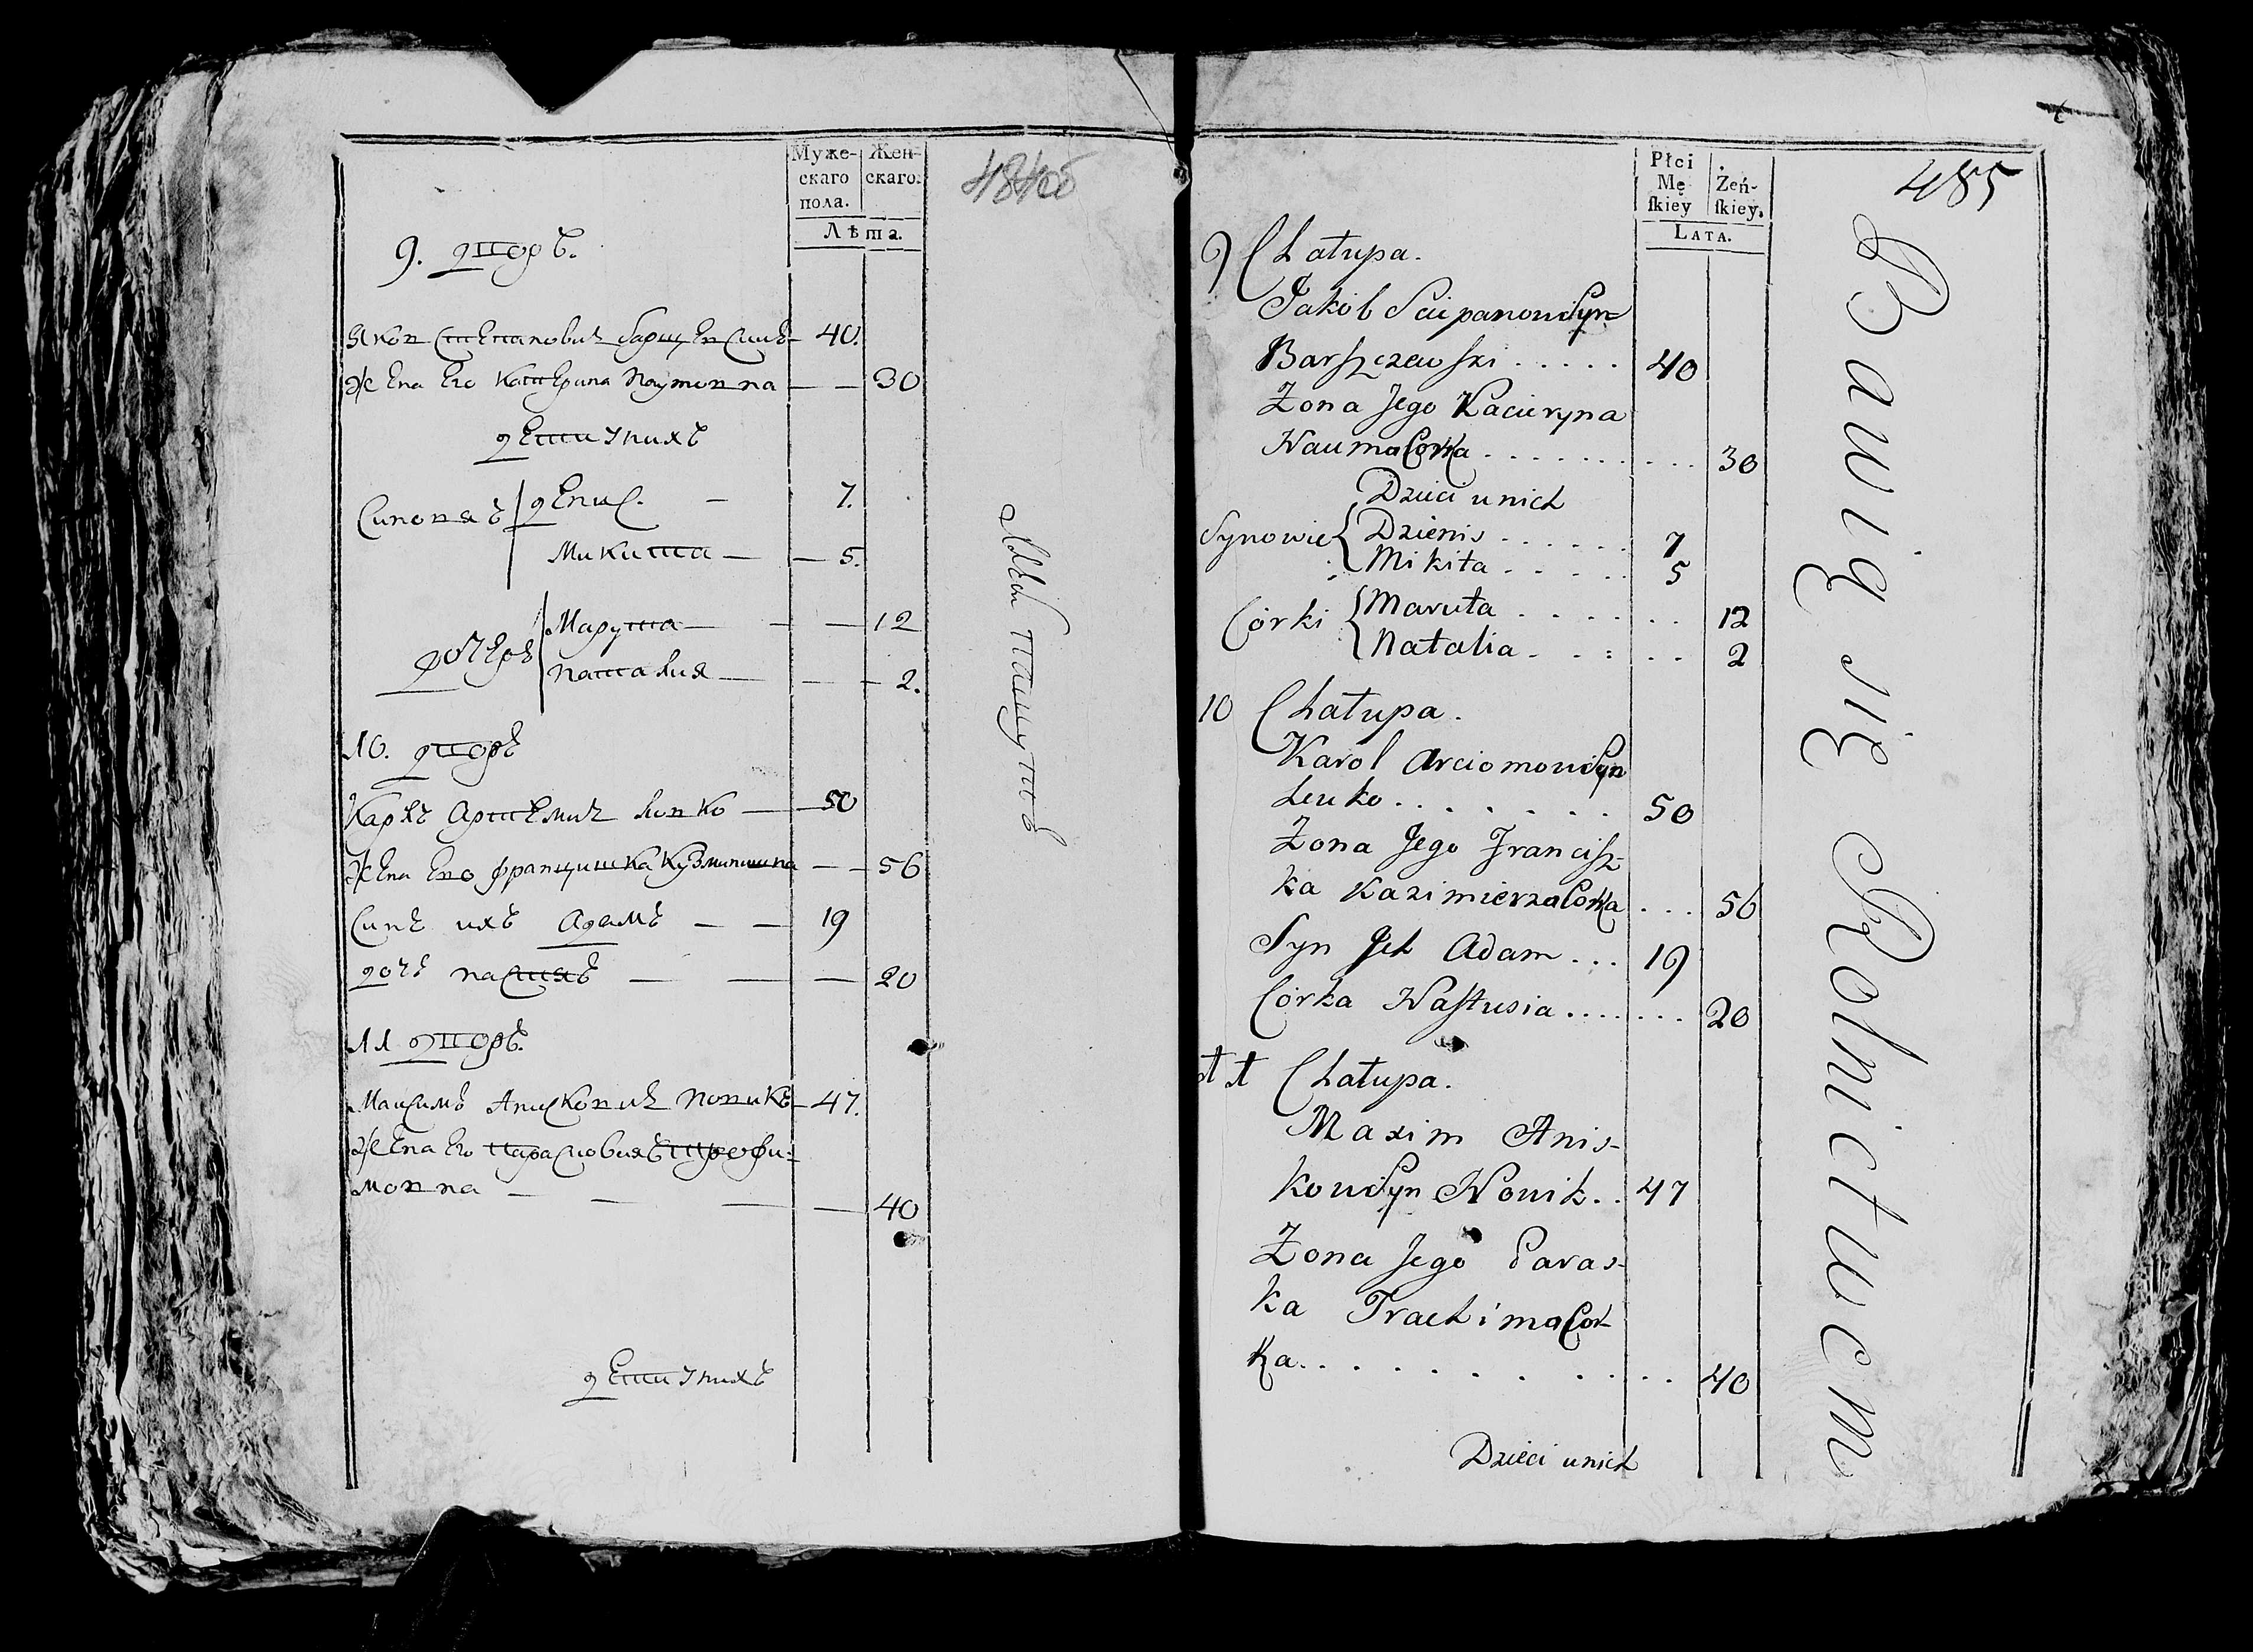 Муже-
скаго
пола.
Жен-
скаго.
Лѣта.
484об
9. дворъ.
Яков Степанович Барщевский 40.
Жена Его Катерина Наумовна 30
дети у нихъ
Синовья денис. 7.
Микита 5.
дочери Марута 12
Наталия 2.
10. дворъ
Карлъ Артемич Левко 50
Жена Его францишка Кузминишна 56
Синъ ихъ Адамъ 19
дочь настя 20
11 дворъ.
Максимъ Анискович Новикъ 47.
Жена Его Парасковия Трофи=
мовна 40
дети у нихъ
Płci
Mę
ſkiey
Żeń-
ſkiey.
LATA.
485
9 Chałupa.
Jakób Sciepanow Syn=
Barſzczewſki . . . . . 40
Żona Jego Kacieryna
Nauma Corka . . . . . . . . . 30
Dzieci u nich
Synowie Dzienis . . . . . . 7
Mikita . . . . . 5
Córki Maruta . . . . . . . 12
Natalia . . . . . 2
10 Chałupa.
Karol Arciomow Syn
Leuko . . . . . . . 50
Żona Jego Franciſz-
ka Kazimierza Corka . . . 56
Syn Jch Adam . . . 19
Córka Naſtusia . . . . . . . 20
11 Chałupa.
Maxim Anis-
kow Syn Nowik . . 47
Żona Jego Paras-
ka Trachima Cor-
ka . . . . . . . . . . 40
Dzieci u nich
Bawią się Rolnictwem